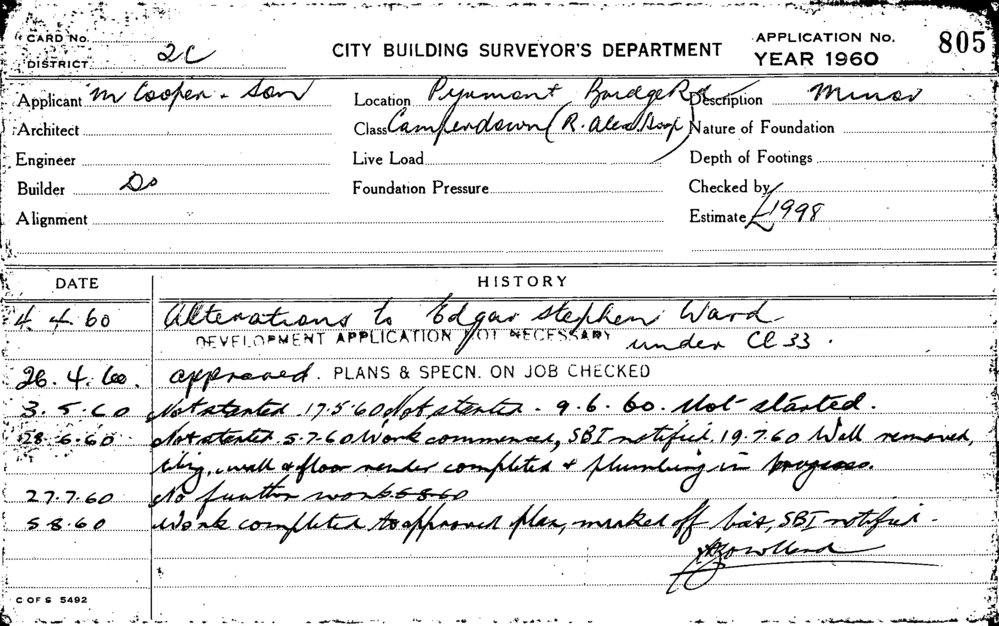 CARD No.
DISTRICT 2C
CITY BUILDING SURVEYOR'S DEPARTMENT
APPLICATION No. 805
YEAR 1960
Applicant M Cooper & Son
Location Pyrmont Bridge Rd
Description Minor
Architect
Class Camperdown (R. Alex Hosp)
Nature of Foundation
Engineer
Live Load
Depth of Footings
Builder Do
Foundation Pressure
Checked by
Alignment
Estimate £1998
DATE HISTORY
4.4.60 Alterations to Edgar Stephen Ward
DEVELOPMENT APPLICATION NOT NECESSARY under Cl 33.
26.4.60. approved. PLANS & SPECN. ON JOB CHECKED
3.5.60 Not started 17.5.60 Not started. 9.6.60. Not started.
28.6.60 Not started 5.7.60 Work commenced, SBI notified, 19.7.60 Wall removed,
wall & floor render completed & plumbing in progress.
27.7.60 No further work 5.8.60
5.8.60 Work completed to approved plan, marked off SBI notified.
C OF S 5492